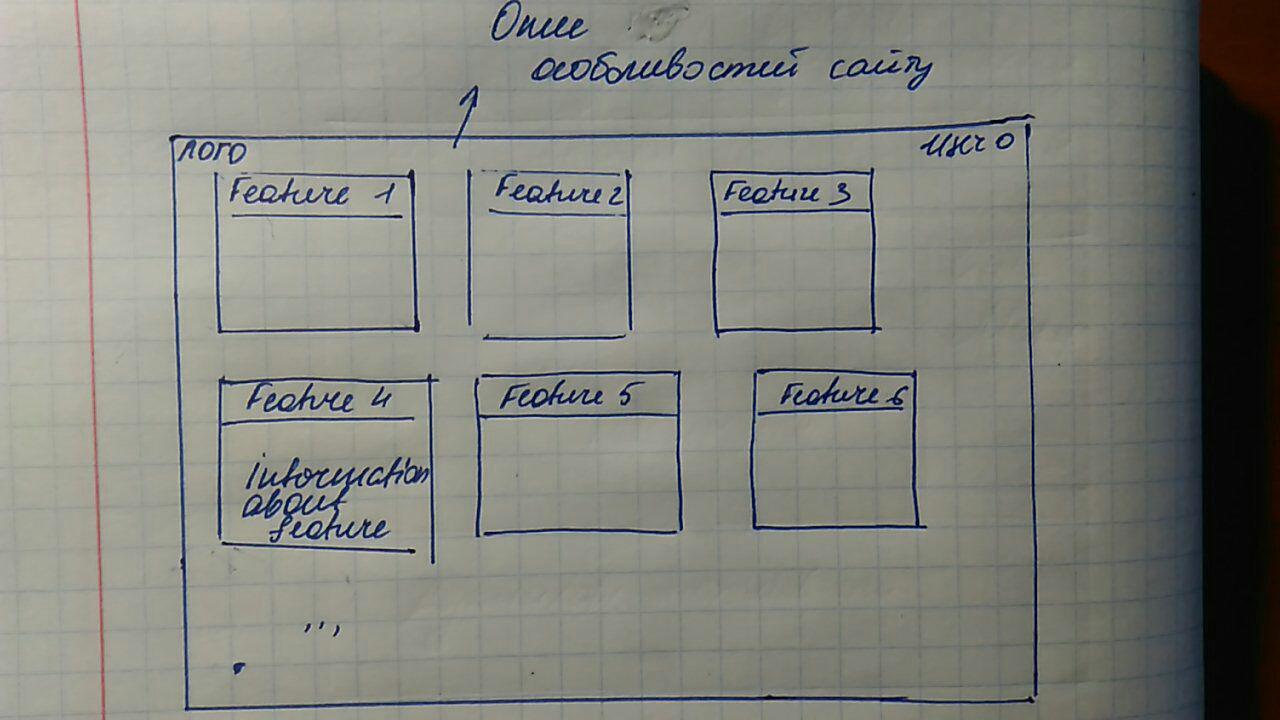 Опис
особливостей сайту
лого
Feature 1
Feature 2
Feature 3
Feature 4
Information
about
feature
Feature 5
Feature 6
...